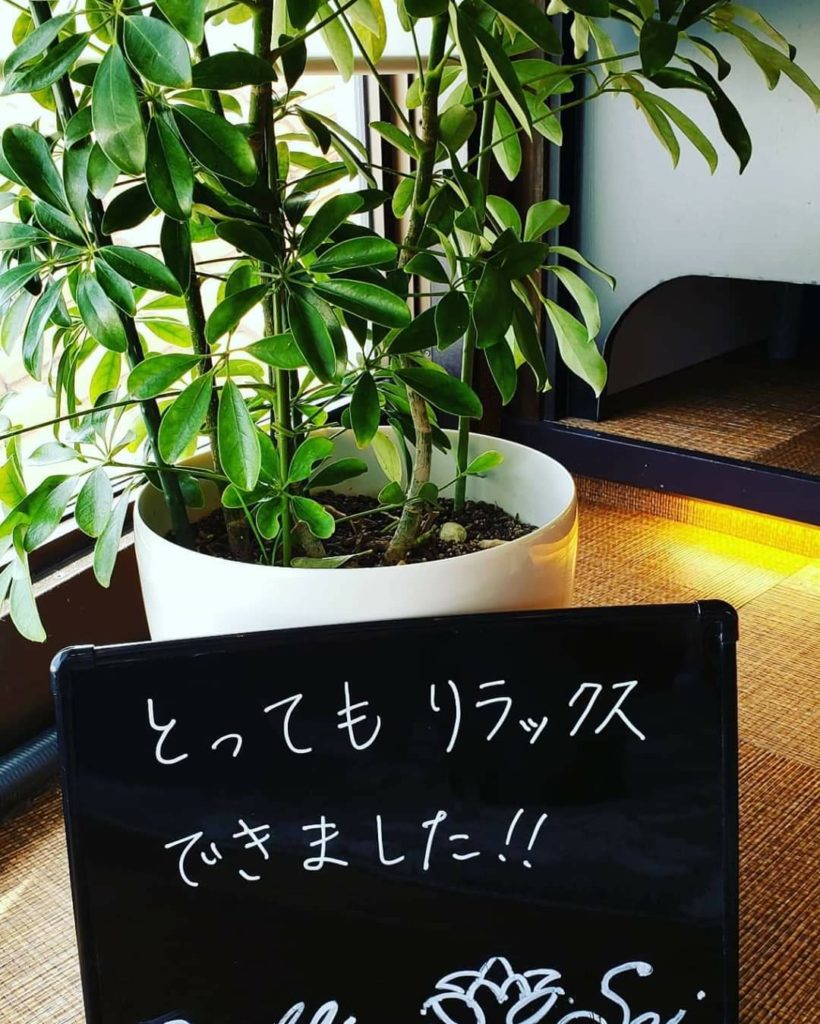 とってもリラックス
できました!!